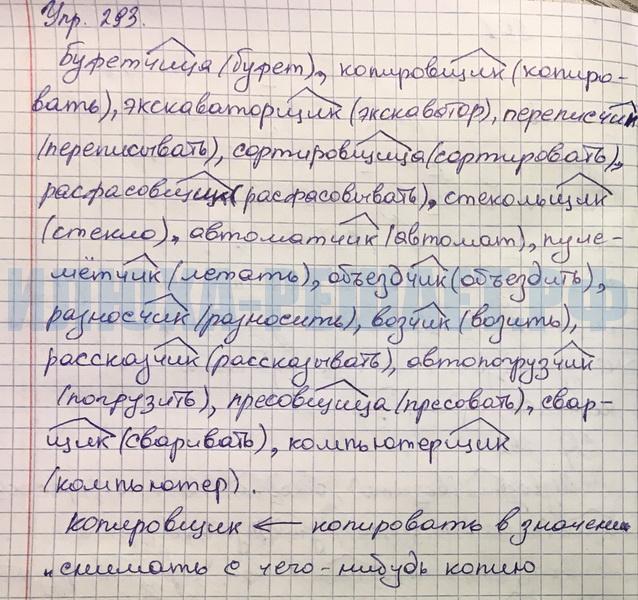 Упр. 293.
Буфетчица (буфет), копировщик (копиро-
вать), экскаваторщик (экскаватор), переписчик
(переписывать), сортировщица (сортировать),
расфасовщик (расфасовывать), стекольщик
(стекло), автоматчик (автомат), пуле-
мётчик (метать), объездчик (объездить),
разносчик (разносить), возчик (возить),
рассказчик (рассказывать), автопогрузчик
(погрузить), прессовщица (пресовать), свар-
щик (сваривать), компьютерщик
(компьютер).
Копировщик ← копировать в значении
снимать с чего-нибудь копию